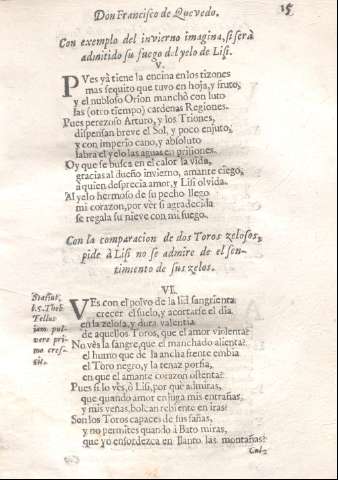 Don Francisco de Quevedo. 15
Con exemplo del invierno imagina, si serà
admitido su fuego del yelo de Lisi.
V.
PVes yà tiene la encina en los tizones
mas sequito que tuvo en hoja, y fruto,
y el nubloso Orion manchò con luto
las (otro tiempo) cardenas Regiones.
Pues perezoso Arturo, y los Triones,
dispensan breve el Sol, y poco enjuto,
y con imperio cano, y absoluto
labra el yelo las aguas en prisiones.
Oy que se busca en el calor la vida,
gracias al dueño invierno, amante ciego,
à quien desprecia amor, y Lisi olvida.
Al yelo hermoso de su pecho llego
mi corazon, por vèr si agradecida
se regala su nieve con mi fuego.
Con la comparacion de dos Toros zelosos,
pide à Lisi no se admire de el sen-
timiento de sus zelos.
VI.
Statius,
l.5. Theb.
Tellus
iam pul-
vere pri-
mo cres-
cit.
VEs con el polvo de la lid sangrienta
crecer el suelo, y acortarse el dia
en la zelosa, y dura valentia
de aquellos Toros, que el amor violenta?
No vès la sangre, que el manchado alienta?
el humo que de la ancha frente embia
el Toro negro, y la tenaz porfia,
en que el amante corazon ostenta?
Pues si lo vès, ò Lisi, por què admiras,
que quando amor enjuga mis entrañas,
y mis venas, bolcan rebiente en iras?
Son los Toros capaces de sus sañas,
y no permites quando à Bato miras,
que yo ensordezca en llanto las montañas?